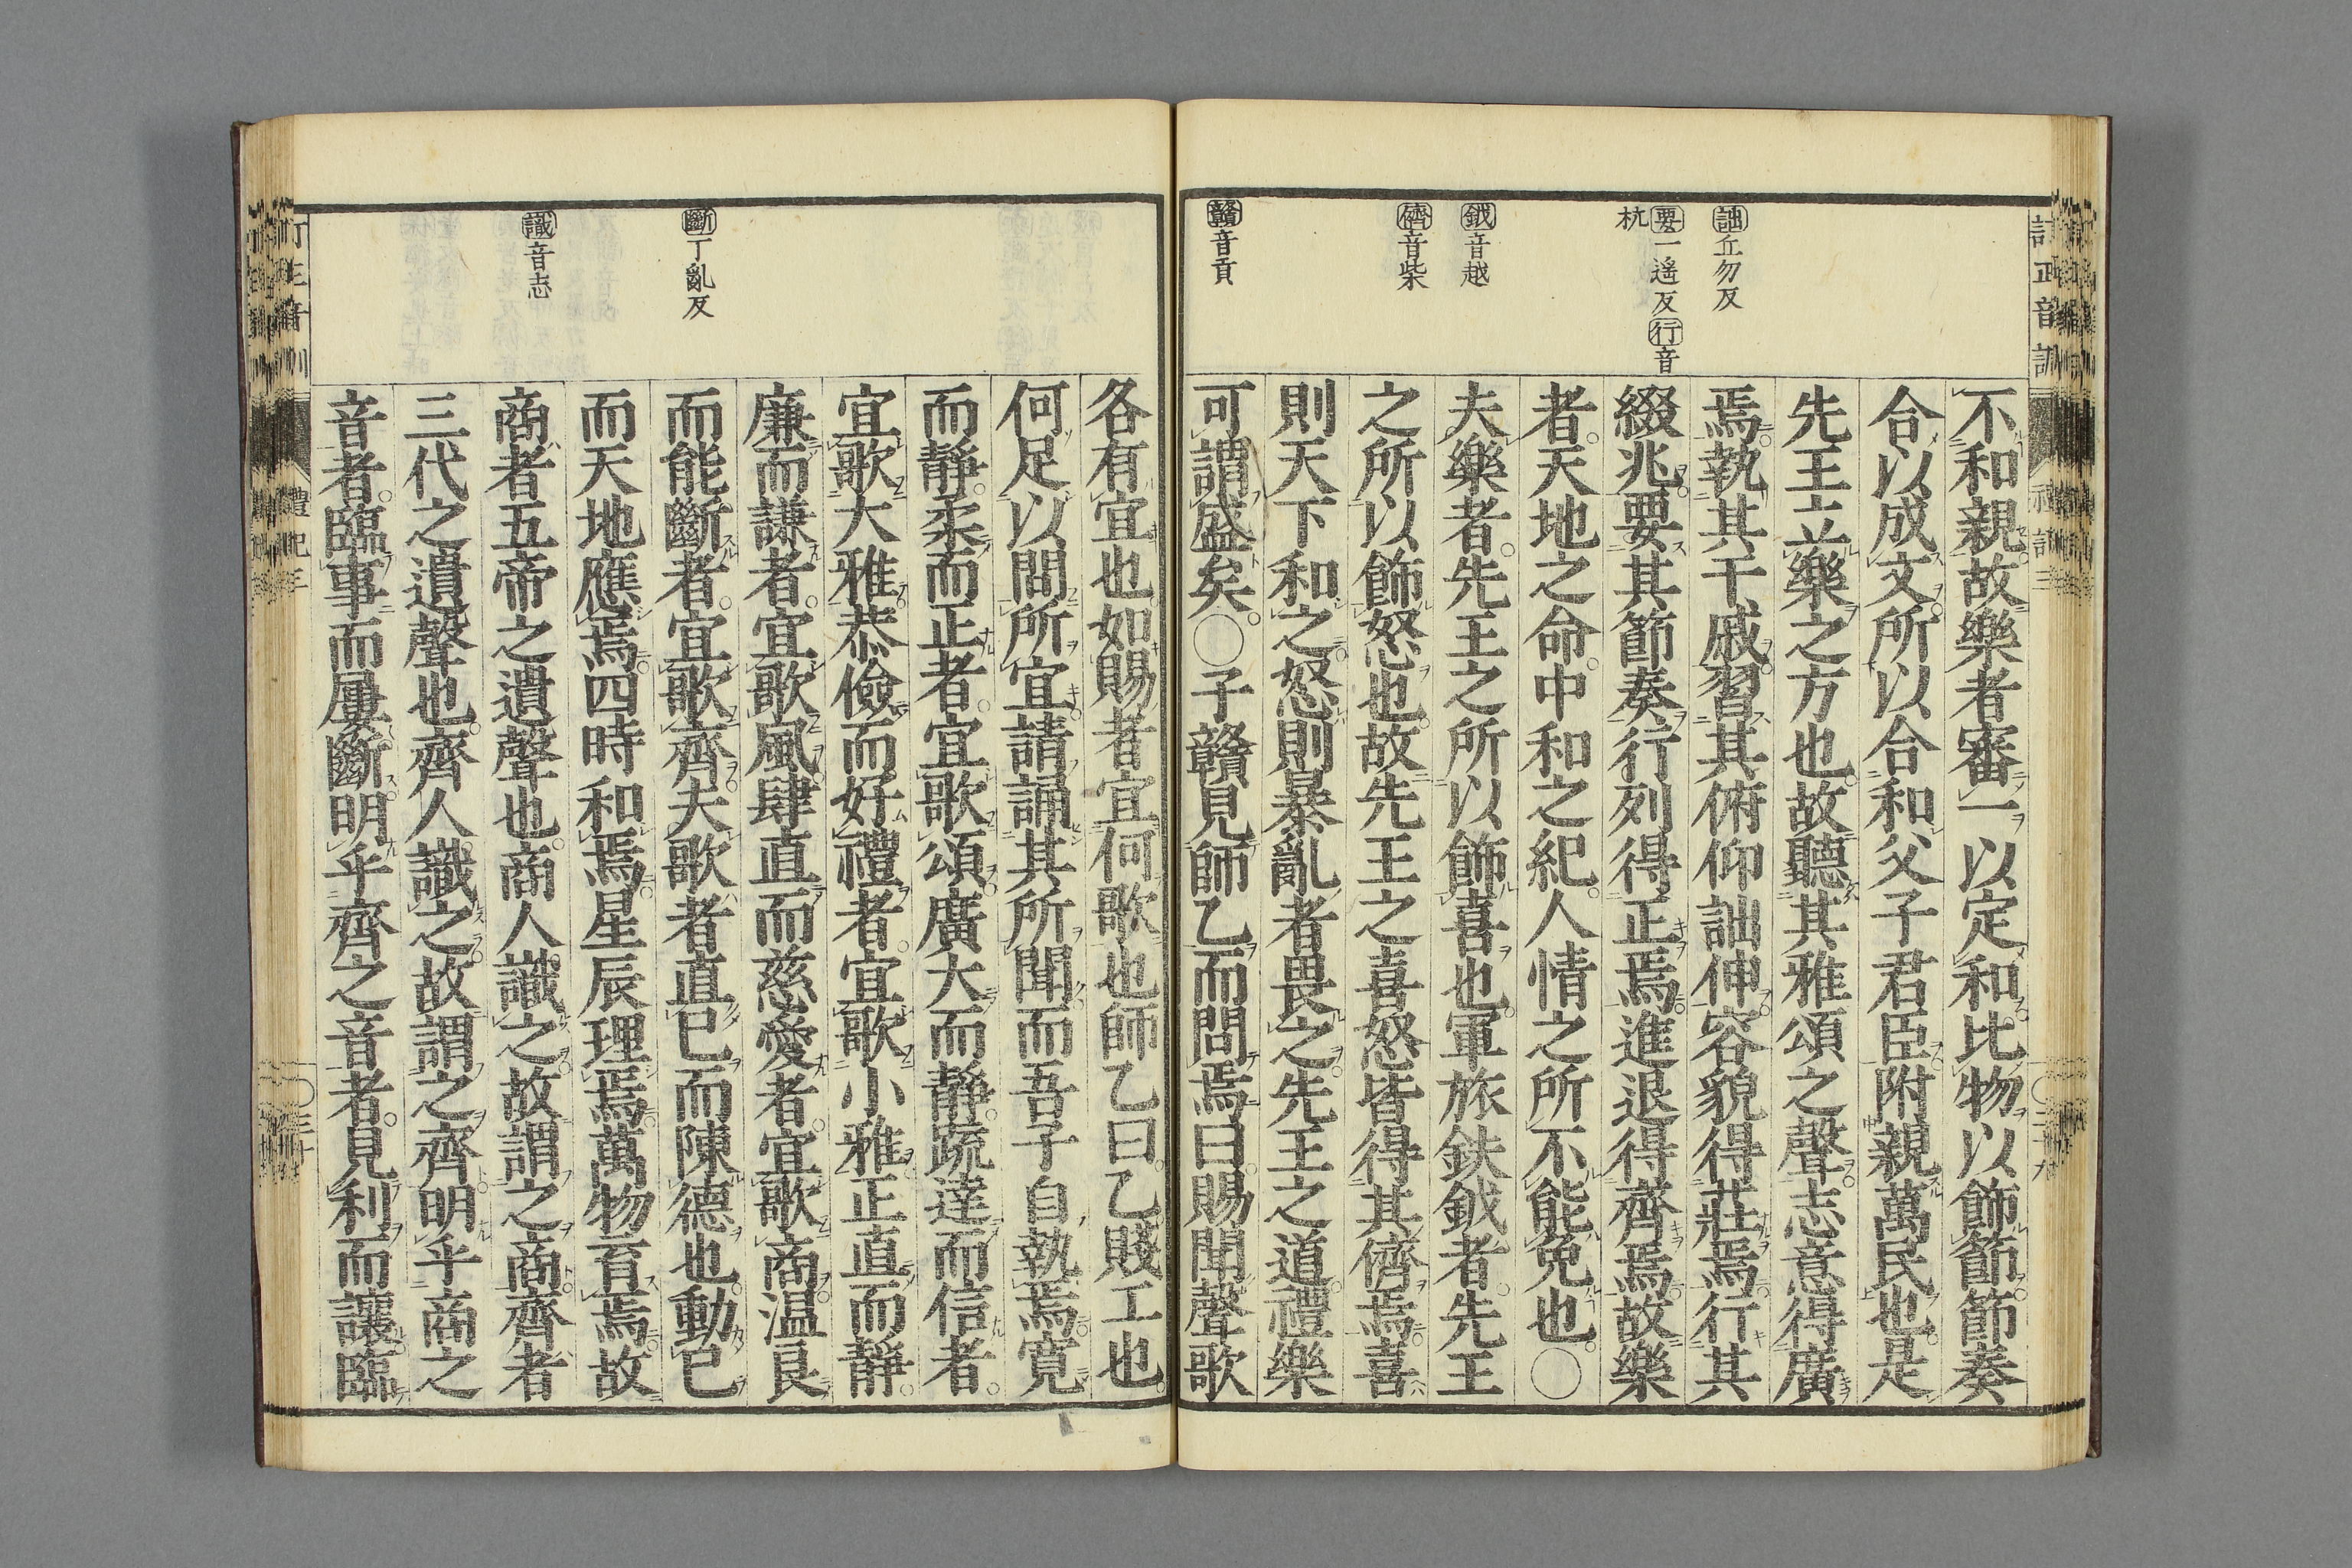 訂正音訓
詘丘勿反
要一遥反行音
杭
鉞音越
儕音柴
贛音貢
不和親故樂者審一以定和比物以飾節節奏
合以成文所以合和父子君臣附親萬民也是
先王立樂之方也故聽其雅頌之聲志意得廣
焉執其干戚習其俯仰詘伸容貌得莊焉行其
綴兆要其節奏行列得正焉進退得齊焉故樂
者天地之命中和之紀人情之所不能免也○
夫樂者先王之所以飾喜也軍旅鈇鉞者先王
之所以飾怒也故先王之喜怒皆得其儕焉喜
則天下和之怒則暴亂者畏之先王之道禮樂
可謂盛矣○子贛見師乙而問焉曰賜聞聲歌
斷丁亂反
識音志
各有宜也如賜者宜何歌也師乙曰乙賤工也
何足以問所宜請誦其所聞而吾子自執焉寬
而靜柔而正者宜歌頌廣大而靜疏達而信者
宜歌大雅恭儉而好禮者宜歌小雅正直而靜
廉而謙者宜歌風肆直而慈愛者宜歌商温良
而能斷者宜歌齊夫歌者直己而陳德也動己
而天地應焉四時和焉星辰理焉萬物育焉故
商者五帝之遺聲也商人識之故謂之商齊者
三代之遺聲也齊人識之故謂之齊明乎商之
音者臨事而屢斷明乎齊之音者見利而讓臨